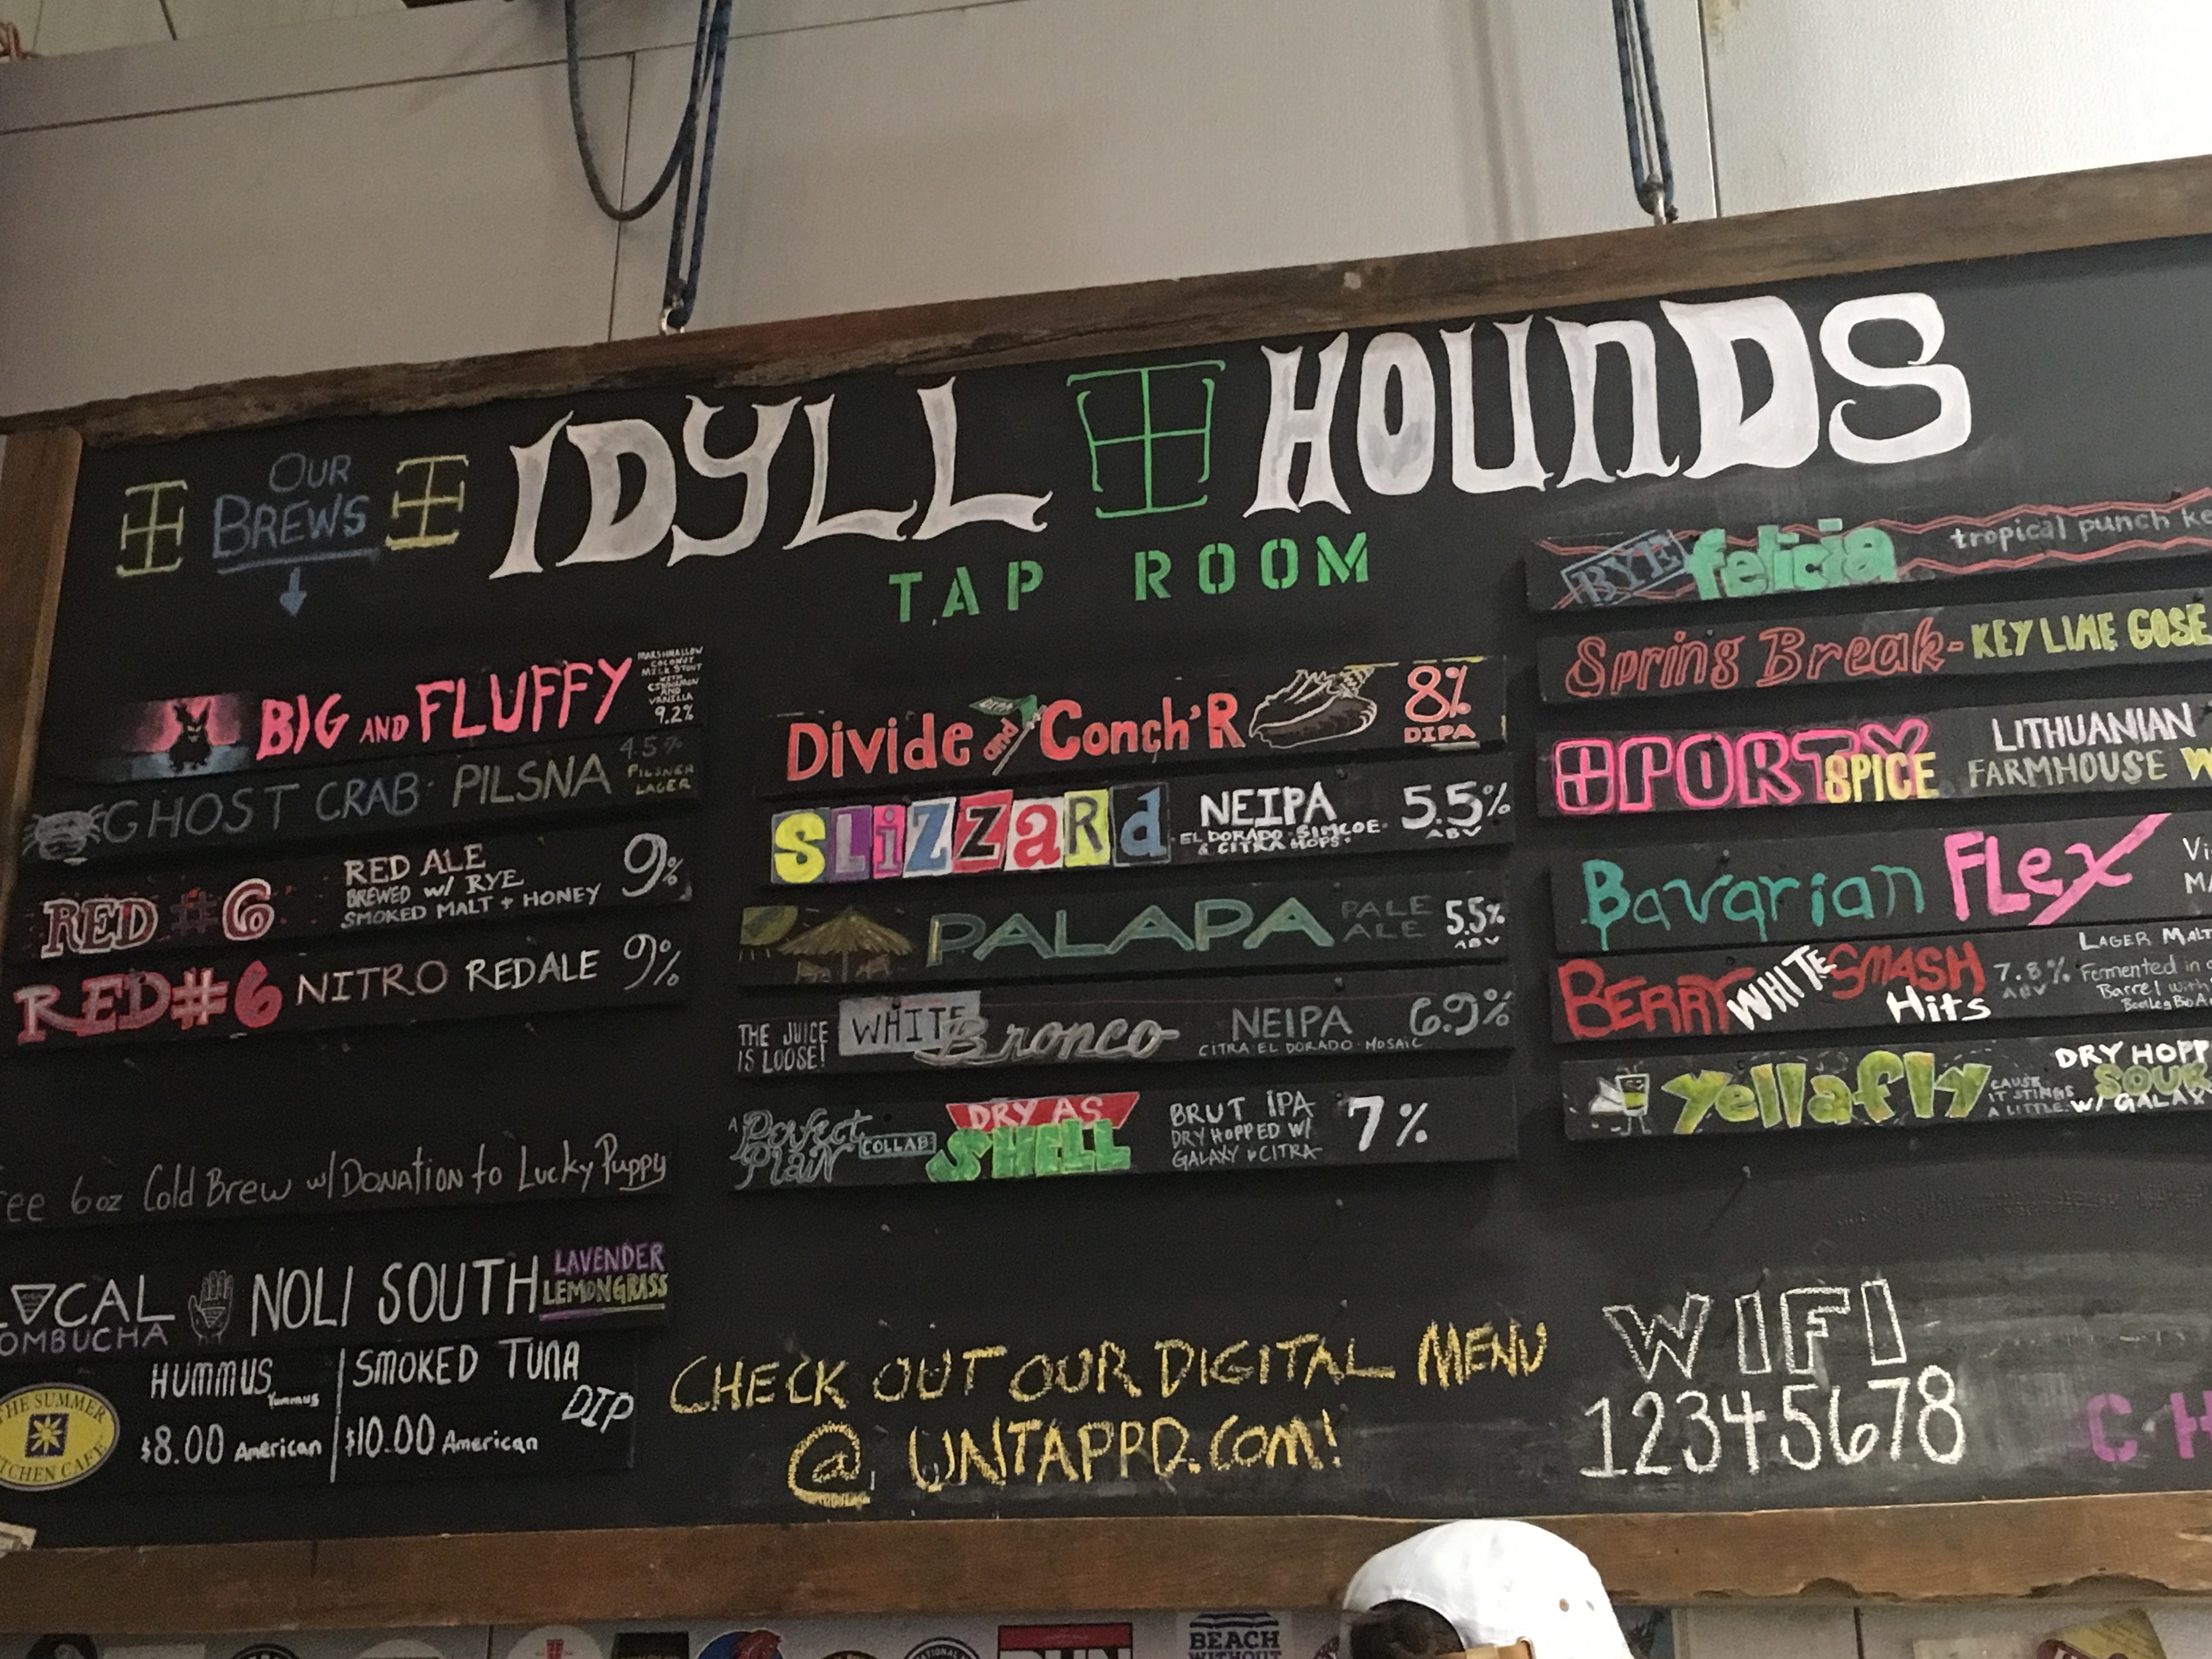 OUR
BREWS
IDYLL HOUNDS
TAP ROOM
BIG AND FLUFFY
MARSHMALLOW
COCONUT
MILK STOUT
WITH
CINNAMON
AND
VANILLA
9.2%
GHOST CRAB· PILSNA
4.5%
PILSNER
LAGER
RED #6
RED ALE
BREWED w/ RYE
SMOKED MALT + HONEY
9%
RED#6 NITRO RED ALE 9%
6oz Cold Brew w/ Donation to Lucky Puppy
LOCAL
KOMBUCHA
NOLI SOUTH
LAVENDER
LEMONGRASS
THE SUMMER
KITCHEN CAFE
HUMMUS
Yummus
$8.00 American
SMOKED TUNA
DIP
$10.00 American
Divide and Conch'R
8%
DIPA
SLiZZaRd
NEIPA
EL DORADO·SIMCOE·
& CITRA HOPS·
5.5%
ABV
PALAPA
PALE
ALE
5.5%
ABV
THE JUICE
IS LOOSE!
WHITE
Bronco
NEIPA
CITRA·EL DORADO·MOSAIC
6.9%
A
Perfect
Plain
COLLAB
DRY AS
SHELL
BRUT IPA
DRY HOPPED W/
GALAXY & CITRA
7%
CHECK OUT OUR DIGITAL MENU
@ UNTAPPD.COM!
BYE felicia tropical punch
Spring Break- KEY LIME GOSE
PORTY
SPICE
LITHUANIAN
FARMHOUSE
Bavarian FLex
BERRY WHITE SMASH
Hits
7.8%
ABV
LAGER MALT
Fermented in
Barrel with
yellafly
CAUSE
IT STINGS
A LITTLE
DRY HOPP
SOUR
W/ GALAX
WIFI
12345678
CH
BEACH
WITHOUT